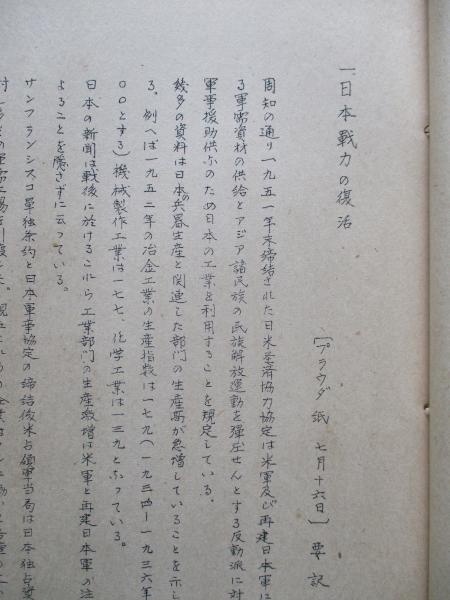 一、日本戦力の復活
[プラウダ紙 七月十六日] 要記
周知の通り一九五一年末締結された日米経済協力協定は米軍及び再建日本軍に
る軍需資材の供給とアジア諸民族の民族解放運動を弾圧せんとする反動派に対
軍事援助供与のため日本の工業を利用することを規定している。
幾多の資料は日本の兵器生産と関連した部門の生産高が急増していることを示し
る。例へば一九五二年の冶金工業の生産指数は一七九(一九三四ー一九三六年
〇〇とする)機械製作工業は一七七、化学工業は一三九となっている。
日本の新聞は戦後に於けるこれら工業部門の生産激増は米軍と再建日本軍の注
よることを隠さずに云っている。
サンフランシスコ単独条約と日本軍事協定の締結後米占領軍当局は日本独占資